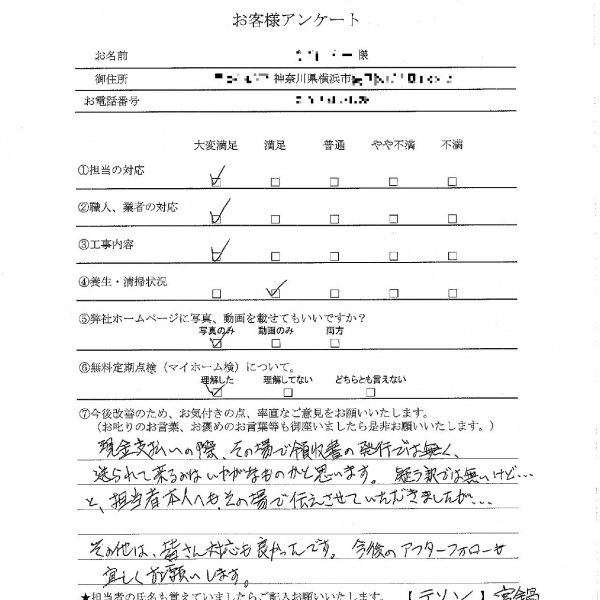 お客様アンケート
お名前 様
御住所 神奈川県横浜市
お電話番号
大変満足 満足 普通 やや不満 不満
①担当の対応
②職人、業者の対応
③工事内容
④養生・清掃状況
⑤弊社ホームページに写真、動画を載せてもいいですか?
写真のみ 動画のみ 両方
⑥無料定期点検(マイホーム検)について。
理解した 理解してない どちらとも言えない
⑦今後改善のため、お気付きの点、率直なご意見をお願いいたします。
(お叱りのお言葉、お褒めのお言葉等も御座いましたら是非お願いいたします。)
現金支払いの際、その場で領収書の発行では無く、
送られて来るのはいかがなものかと思います。疑う訳では無いけど…
と、担当者本人へも、その場で伝えさせていただきましたが…
その他は、皆さん対応も良かったです。今後のアフターフォローも
宜しくお願いします。
★担当者の氏名も覚えていましたらご記入お願いいたします。